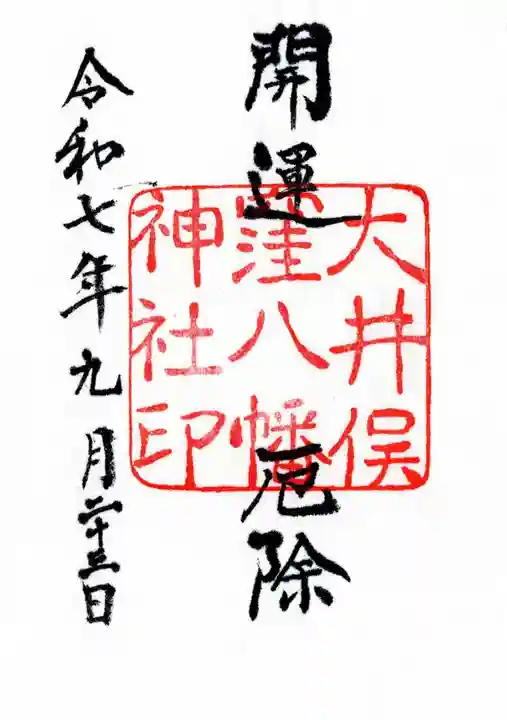 開運
厄除
大井俣
窪八幡
神社印
令和七年九月二十三日